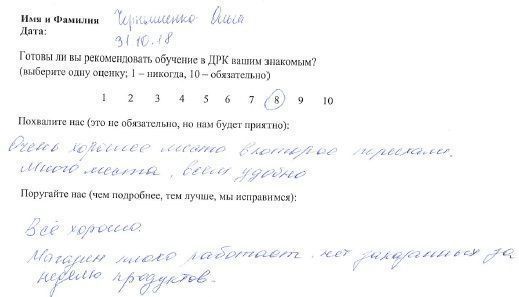 Имя и Фамилия Черкашенко Ольга
Дата: 31.10.18
Готовы ли вы рекомендовать обучение в ДРК вашим знакомым?
(выберите одну оценку; 1 – никогда, 10 – обязательно)
1 2 3 4 5 6 7 8 9 10
Похвалите нас (это не обязательно, но нам будет приятно):
Очень хорошее место в которое приехали.
Много места, всем удобно
Поругайте нас (чем подробнее, тем лучше, мы исправимся):
Всё хорошо.
Магазин плохо работает. нет заказанных за
неделю продуктов.